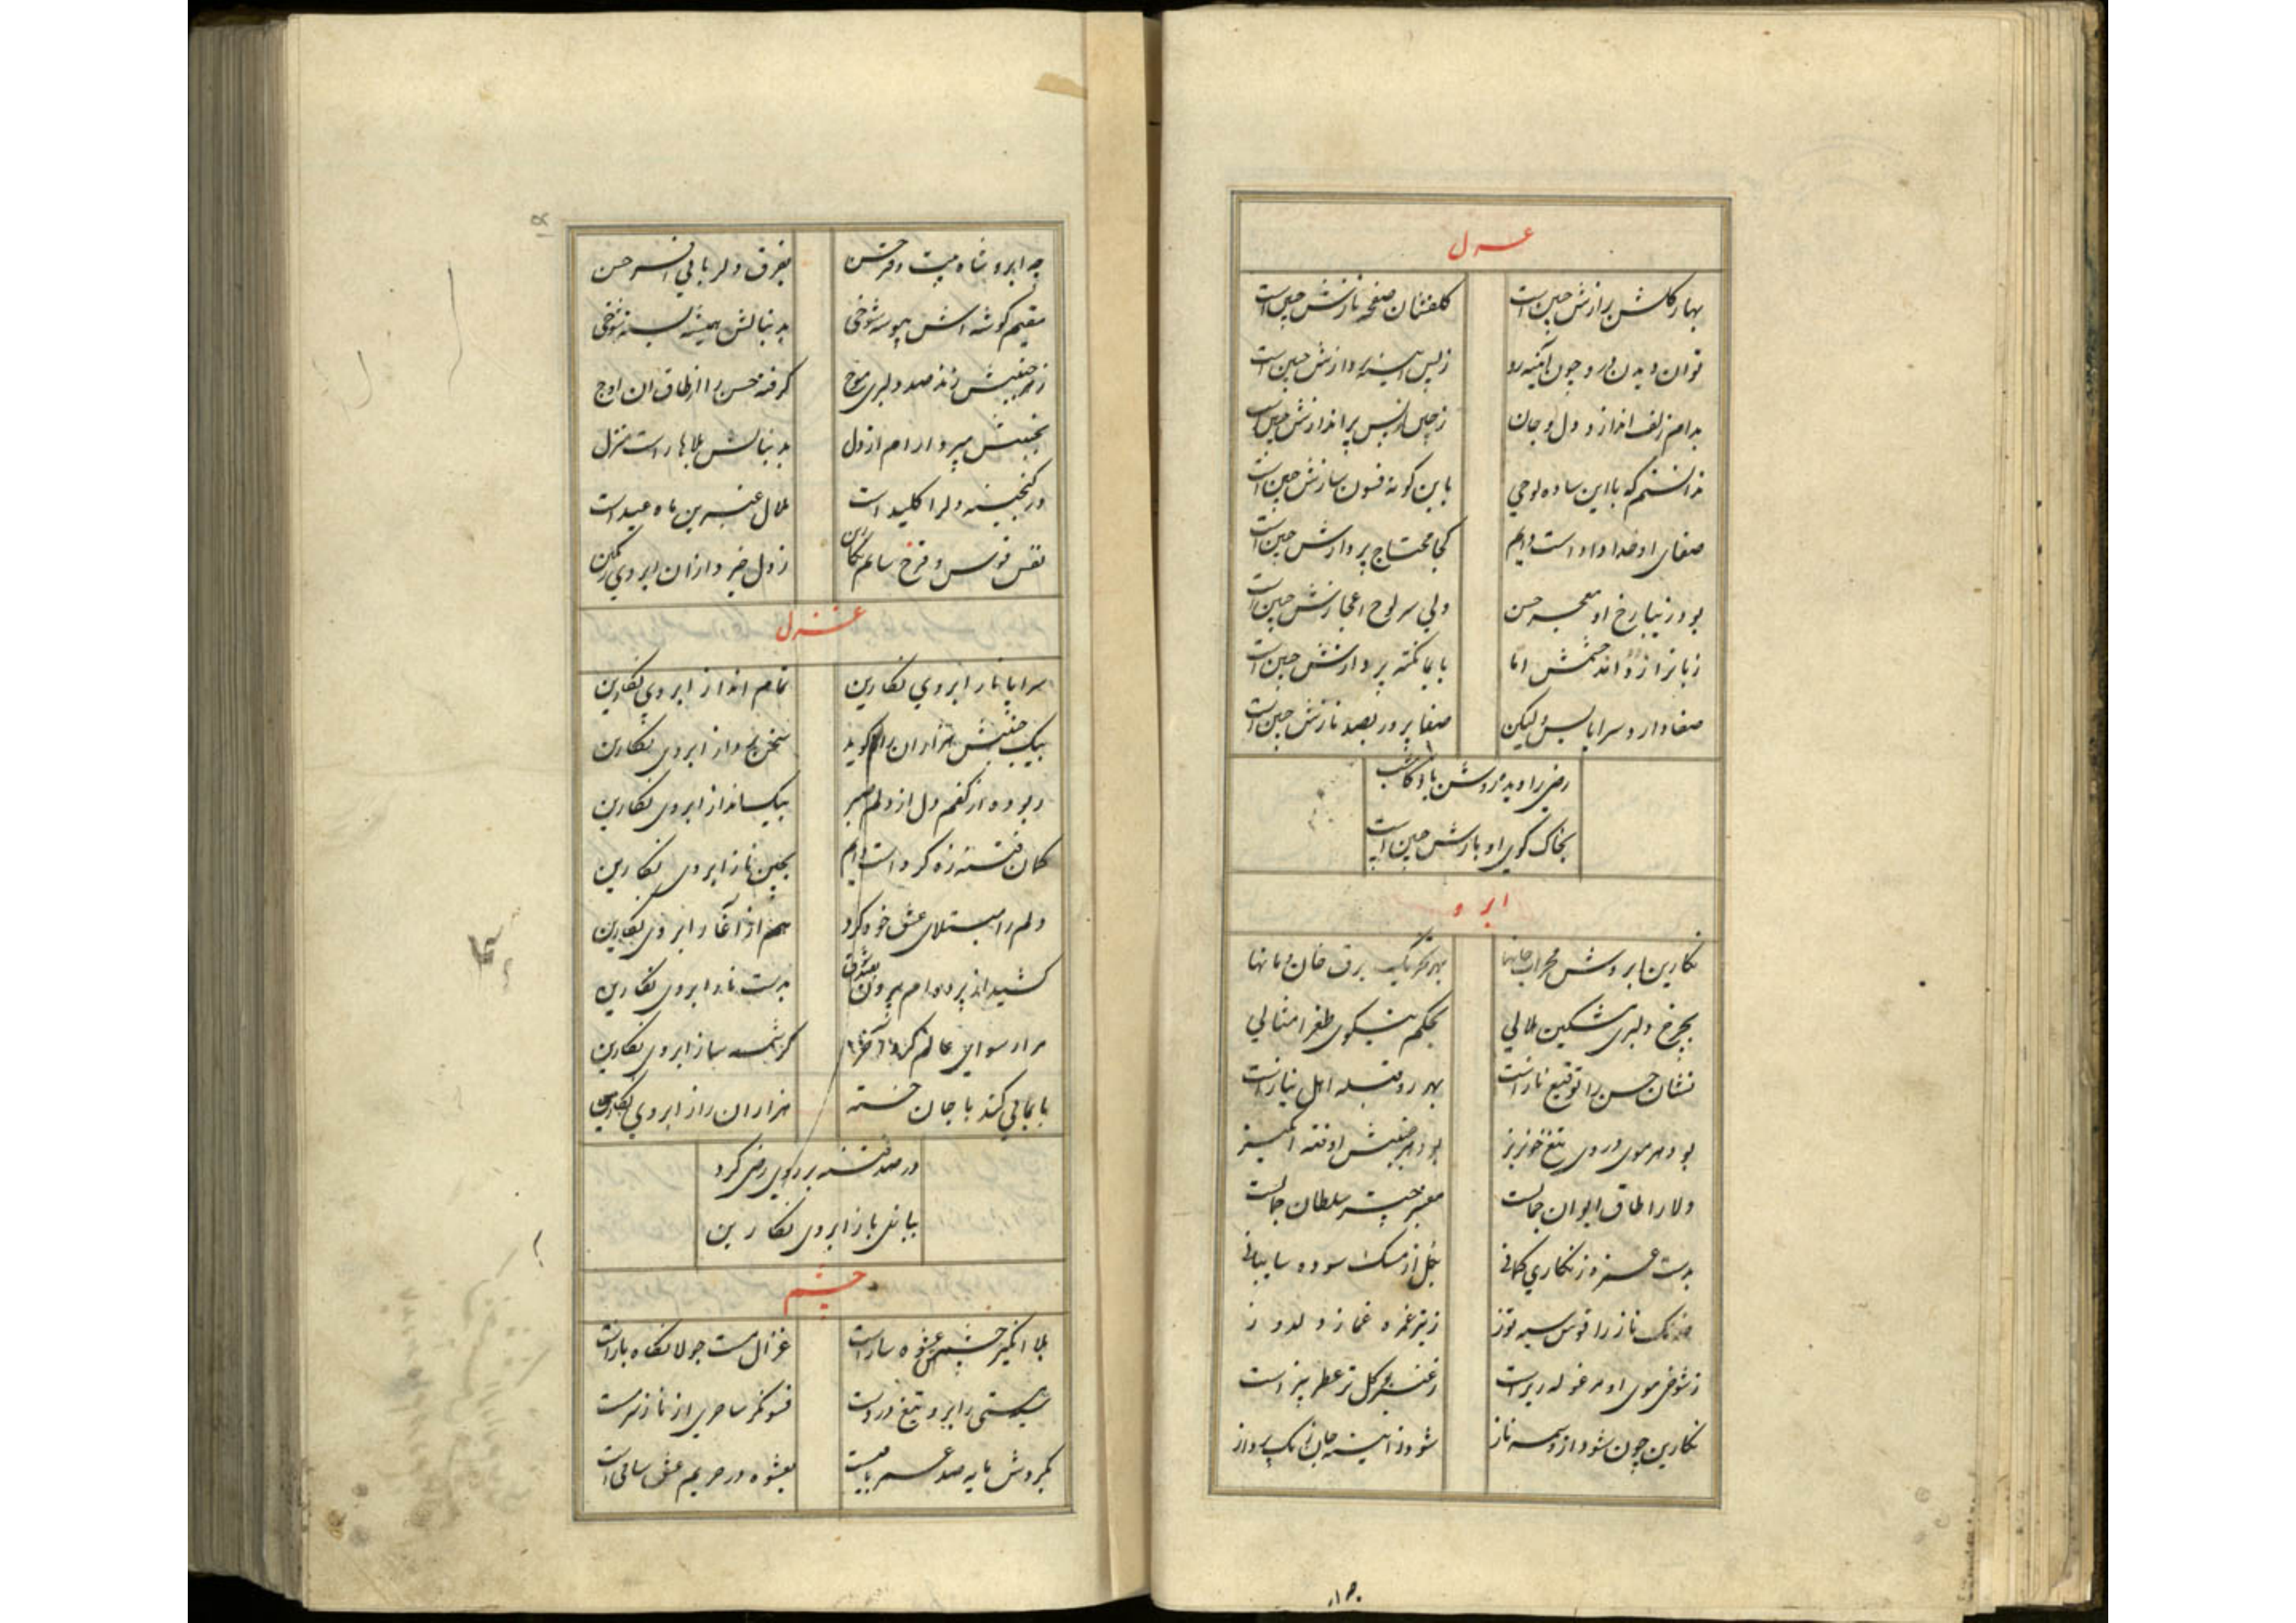 غزل
بهار گلشن رازش جبین است گلفشان صفحه نازش جبین است
توان دیدن درو چون آئینه رو ز بس آئینه پردازش جبین است
بدام زلف اندازد دل و جان ز چین بس پر اندازش جبین است
ندانستم که با این ساده لوحی باین گونه فسون سازش جبین است
صفای او خداداد است دایم کجا محتاج پردازش جبین است
بود زیبا رخ او معجز حسن ولی سر لوح اعجازش جبین است
زبان راز داند چشمش اما بایما نکته پردازش جبین است
صفا دارد سراپایش ولیکن صفا پرور بصد نازش جبین است
رضی را دید مروش
بخاک کوی او بازش جبین است
ابرو
نگارین ابروش محراب جانها بهر تحریک برق خان و مانها
بچرخ دلبری مشکین هلالی بحکم نیکوی طغرا مثالی
نشان حسن را توقیع ناز است بهر رو قبله اهل نیاز است
بود هر موی در وی تیغ خونریز بود هر جنبش او فتنه انگیز
دلا را طاق ایوان جمالست معنبر چتر سلطان جمالست
بدست غمزه زنگاری کمانی بگل از مشک سوده سایبانی
خدنگ ناز را قوس سیه توز ز تیر غمزه غماز و لدوز
ز شوخی موی او مرغوله ریز است ز عنبر بر گل تر عطر بیز است
نگارین چون شود از وسمه ناز شود ز آئینه جان زنک پرداز
چه ابرو شاه بیت دفتر حسن بفرق دلربایی افسر حسن
مقیم گوشه اش پیوسته شوخی بدنبالش همیشه بسته شوخی
ز هر جنبش زند صد دلبری موج گرفته حسن را از طاق آن اوج
بجنبش میبرد آرام از دل بدنبالش بلاها راست منزل
در گنجینه دل را کلید است هلال عنبرین ماه عید است
نقش قوس و قزح سالم نگارین ز دل خیزد ازان ابروی رنگین
غزل
سراپا ناز ابروی نگارین تمام انداز ابروی نگارین
بیک جنبش هزاران گوید سخن پرداز ابروی نگارین
ربوده از کفم دل از دلم صبر بیک انداز ابروی نگارین
کمان فتنه زه کرد است دایم بچین ناز ابروی نگارین
دلم را مبتلای عشق خود کرد هم از آغاز ابروی نگارین
کشید از پرده ام بیرون بعشرت بدست ناز ابروی نگارین
مرا رسوای عالم کرد آخر کرشمه ساز ابروی نگارین
بایمایی کند با جان خسته هزاران راز ابروی نگارین
در صد فتنه بر روی رضی کرد
ببابل باز ابروی نگارین
چشم
بلا انگیز چشمش عشوه ساز است غزال مست جولانگاه ناز است
سیه مستی ز ابرو تیغ در دست فسونگر ساحری از ناز سرمست
بگردش مایه صد عمر باقیست بعشوه در حریم عشق ساقی است